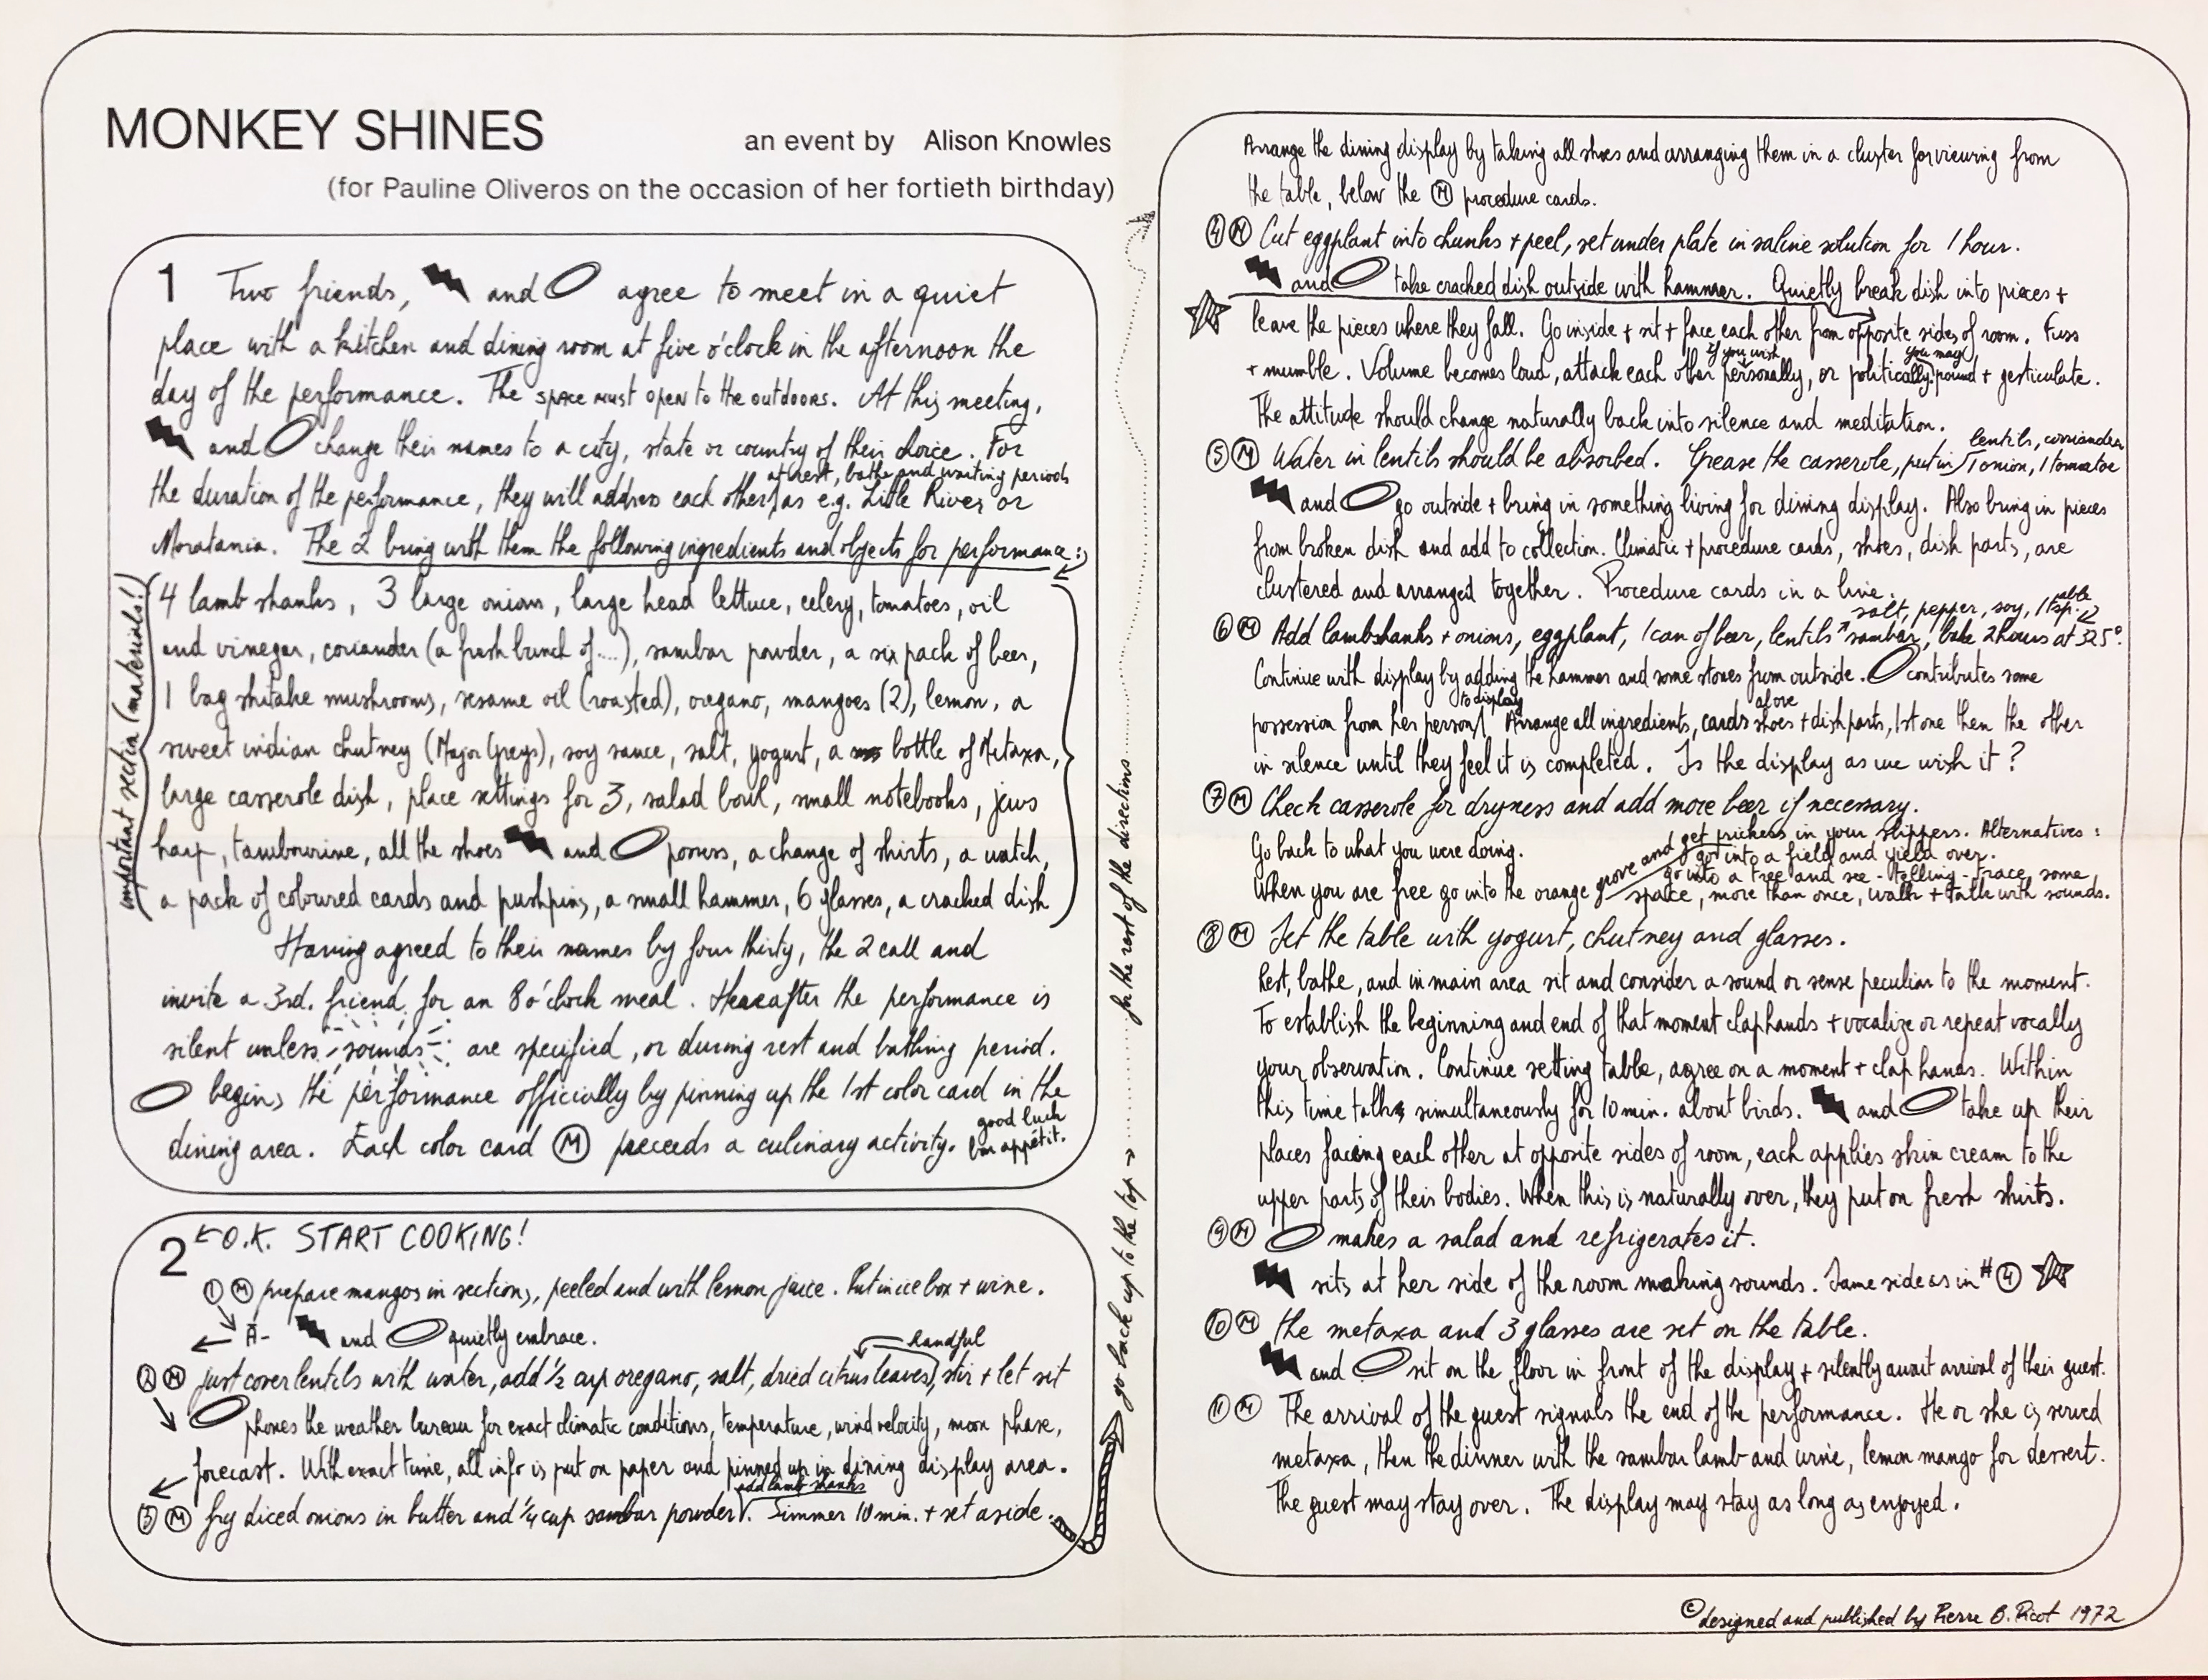 MONKEY SHINES
an event by Alison Knowles
(for Pauline Oliveros on the occasion of her fortieth birthday)
1 Two friends, and agree to meet in a quiet
place with a kitchen and dining room at five o'clock in the afternoon the
day of the performance. The space must open to the outdoors. At this meeting,
and change their names to a city, state or country of their choice. For
at rest, bathe and waiting periods
the duration of the performance, they will address each other, as e.g. Little River or
Moratania. The 2 bring with them the following ingredients and objects for performance:
important sectin (materials!)
4 lamb shanks, 3 large onions, large head lettuce, celery, tomatoes, oil
and vinegar, coriander (a fresh bunch of....), sambar powder, a six pack of beer,
1 bag shitake mushrooms, sesame oil (roasted), oregano, mangoes (2), lemon, a
sweet indian chutney (Major Greys), soy sauce, salt, yogurt, a bottle of Metaxa,
large casserole dish, place settings for 3, salad bowl, small notebooks, jews
harp, tambourine, all the shoes and posess, a change of shirts, a watch,
a pack of coloured cards and pushpins, a small hammer, 6 glasses, a cracked dish
Having agreed to their names by four thirty, the 2 call and
invite a 3rd. friend for an 8 o'clock meal. Hereafter the performance is
silent unless sounds are specified, or during rest and bathing period.
begins the performance officially by pinning up the 1st color card in the
dining area. Each color card Ⓜ preceeds a culinary activity. good luck
bon appétit.
2 O.K. START COOKING!
① Ⓜ prepare mangos in sections, peeled and with lemon juice. Put in ice box + wine.
A- and quietly embrace.
handful
② Ⓜ just cover lentils with water, add ½ cup oregano, salt, dried citrus leaves, stir + let sit
phones the weather bureau for exact climatic conditions, temperature, wind velocity, moon phase,
forecast. With exact time, all info is put on paper and pinned up in dining display area.
add lamb shanks
③ Ⓜ fry diced onions in butter and ¼ cup sambar powder. Simmer 10 min. + set aside.
go back up to the top → for the rest of the directions
Arrange the dining display by taking all shoes and arranging them in a cluster for viewing from
the table, below the Ⓜ procedure cards.
④ Ⓜ Cut eggplant into chunks + peel, set under plate in saline solution for 1 hour.
and take cracked dish outside with hammer. Quietly break dish into pieces +
leave the pieces where they fall. Go inside + sit + face each other from opposite sides of room. Fuss
if you wish you may
+ mumble. Volume becomes loud, attack each other personally, or politically, pound + gesticulate.
The attitude should change naturally back into silence and meditation.
lentils, coriander
⑤ Ⓜ Water in lentils should be absorbed. Grease the casserole, put in 1 onion, 1 tomatoe
and go outside + bring in something living for dining display. Also bring in pieces
from broken dish and add to collection. Climatic + procedure cards, shoes, dish parts, are
clustered and arranged together. Procedure cards in a line.
salt, pepper, soy, 1 tablesp.
⑥ Ⓜ Add lambshanks + onions, eggplant, 1 can of beer, lentils sambar, bake 2 hours at 325°.
Continue with display by adding the hammer and some stones from outside. contributes some
to display above
possession from her person. Arrange all ingredients, cards shoes + dish parts, 1st one then the other
in silence until they feel it is completed. Is the display as we wish it?
⑦ Ⓜ Check casserole for dryness and add more beer if necessary.
Go back to what you were doing.
When you are free go into the orange grove and get prickers in your slippers. Alternatives:
go into a field and yield over.
go into a tree and see - telling - trace some
space, more than once, walk + talk with sounds.
⑧ Ⓜ Set the table with yogurt, chutney and glasses.
Rest, bathe, and in main area sit and consider a sound or sense peculiar to the moment.
To establish the beginning and end of that moment clap hands + vocalize or repeat vocally
your observation. Continue setting table, agree on a moment + clap hands. Within
this time talk simultaneously for 10 min. about birds. and take up their
places facing each other at opposite sides of room, each applies skin cream to the
upper parts of their bodies. When this is naturally over, they put on fresh shirts.
⑨ Ⓜ makes a salad and refrigerates it.
sits at her side of the room making sounds. Same side as in # ④
⑩ Ⓜ the metaxa and 3 glasses are set on the table.
and sit on the floor in front of the display + silently await arrival of their guest.
⑪ Ⓜ The arrival of the guest signals the end of the performance. He or she is served
metaxa, then the dinner with the sambar lamb and wine, lemon mango for dessert.
The guest may stay over. The display may stay as long as enjoyed.
© designed and published by Pierre B. Picot 1972